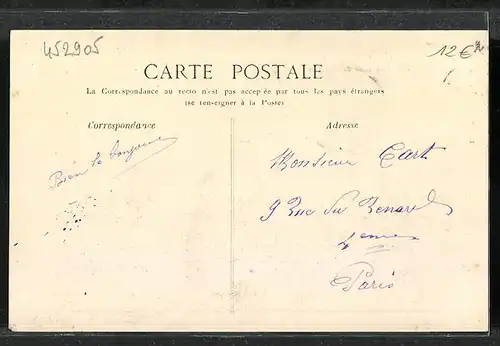 452905
12€
CARTE POSTALE
La Correspondance au recto n'est pas acceptée par tous les pays étrangers
(se renseigner à la Poste)
Correspondance
Adresse
Bien le bonjour
Monsieur Cart
9 Rue du Renard
4eme
Paris